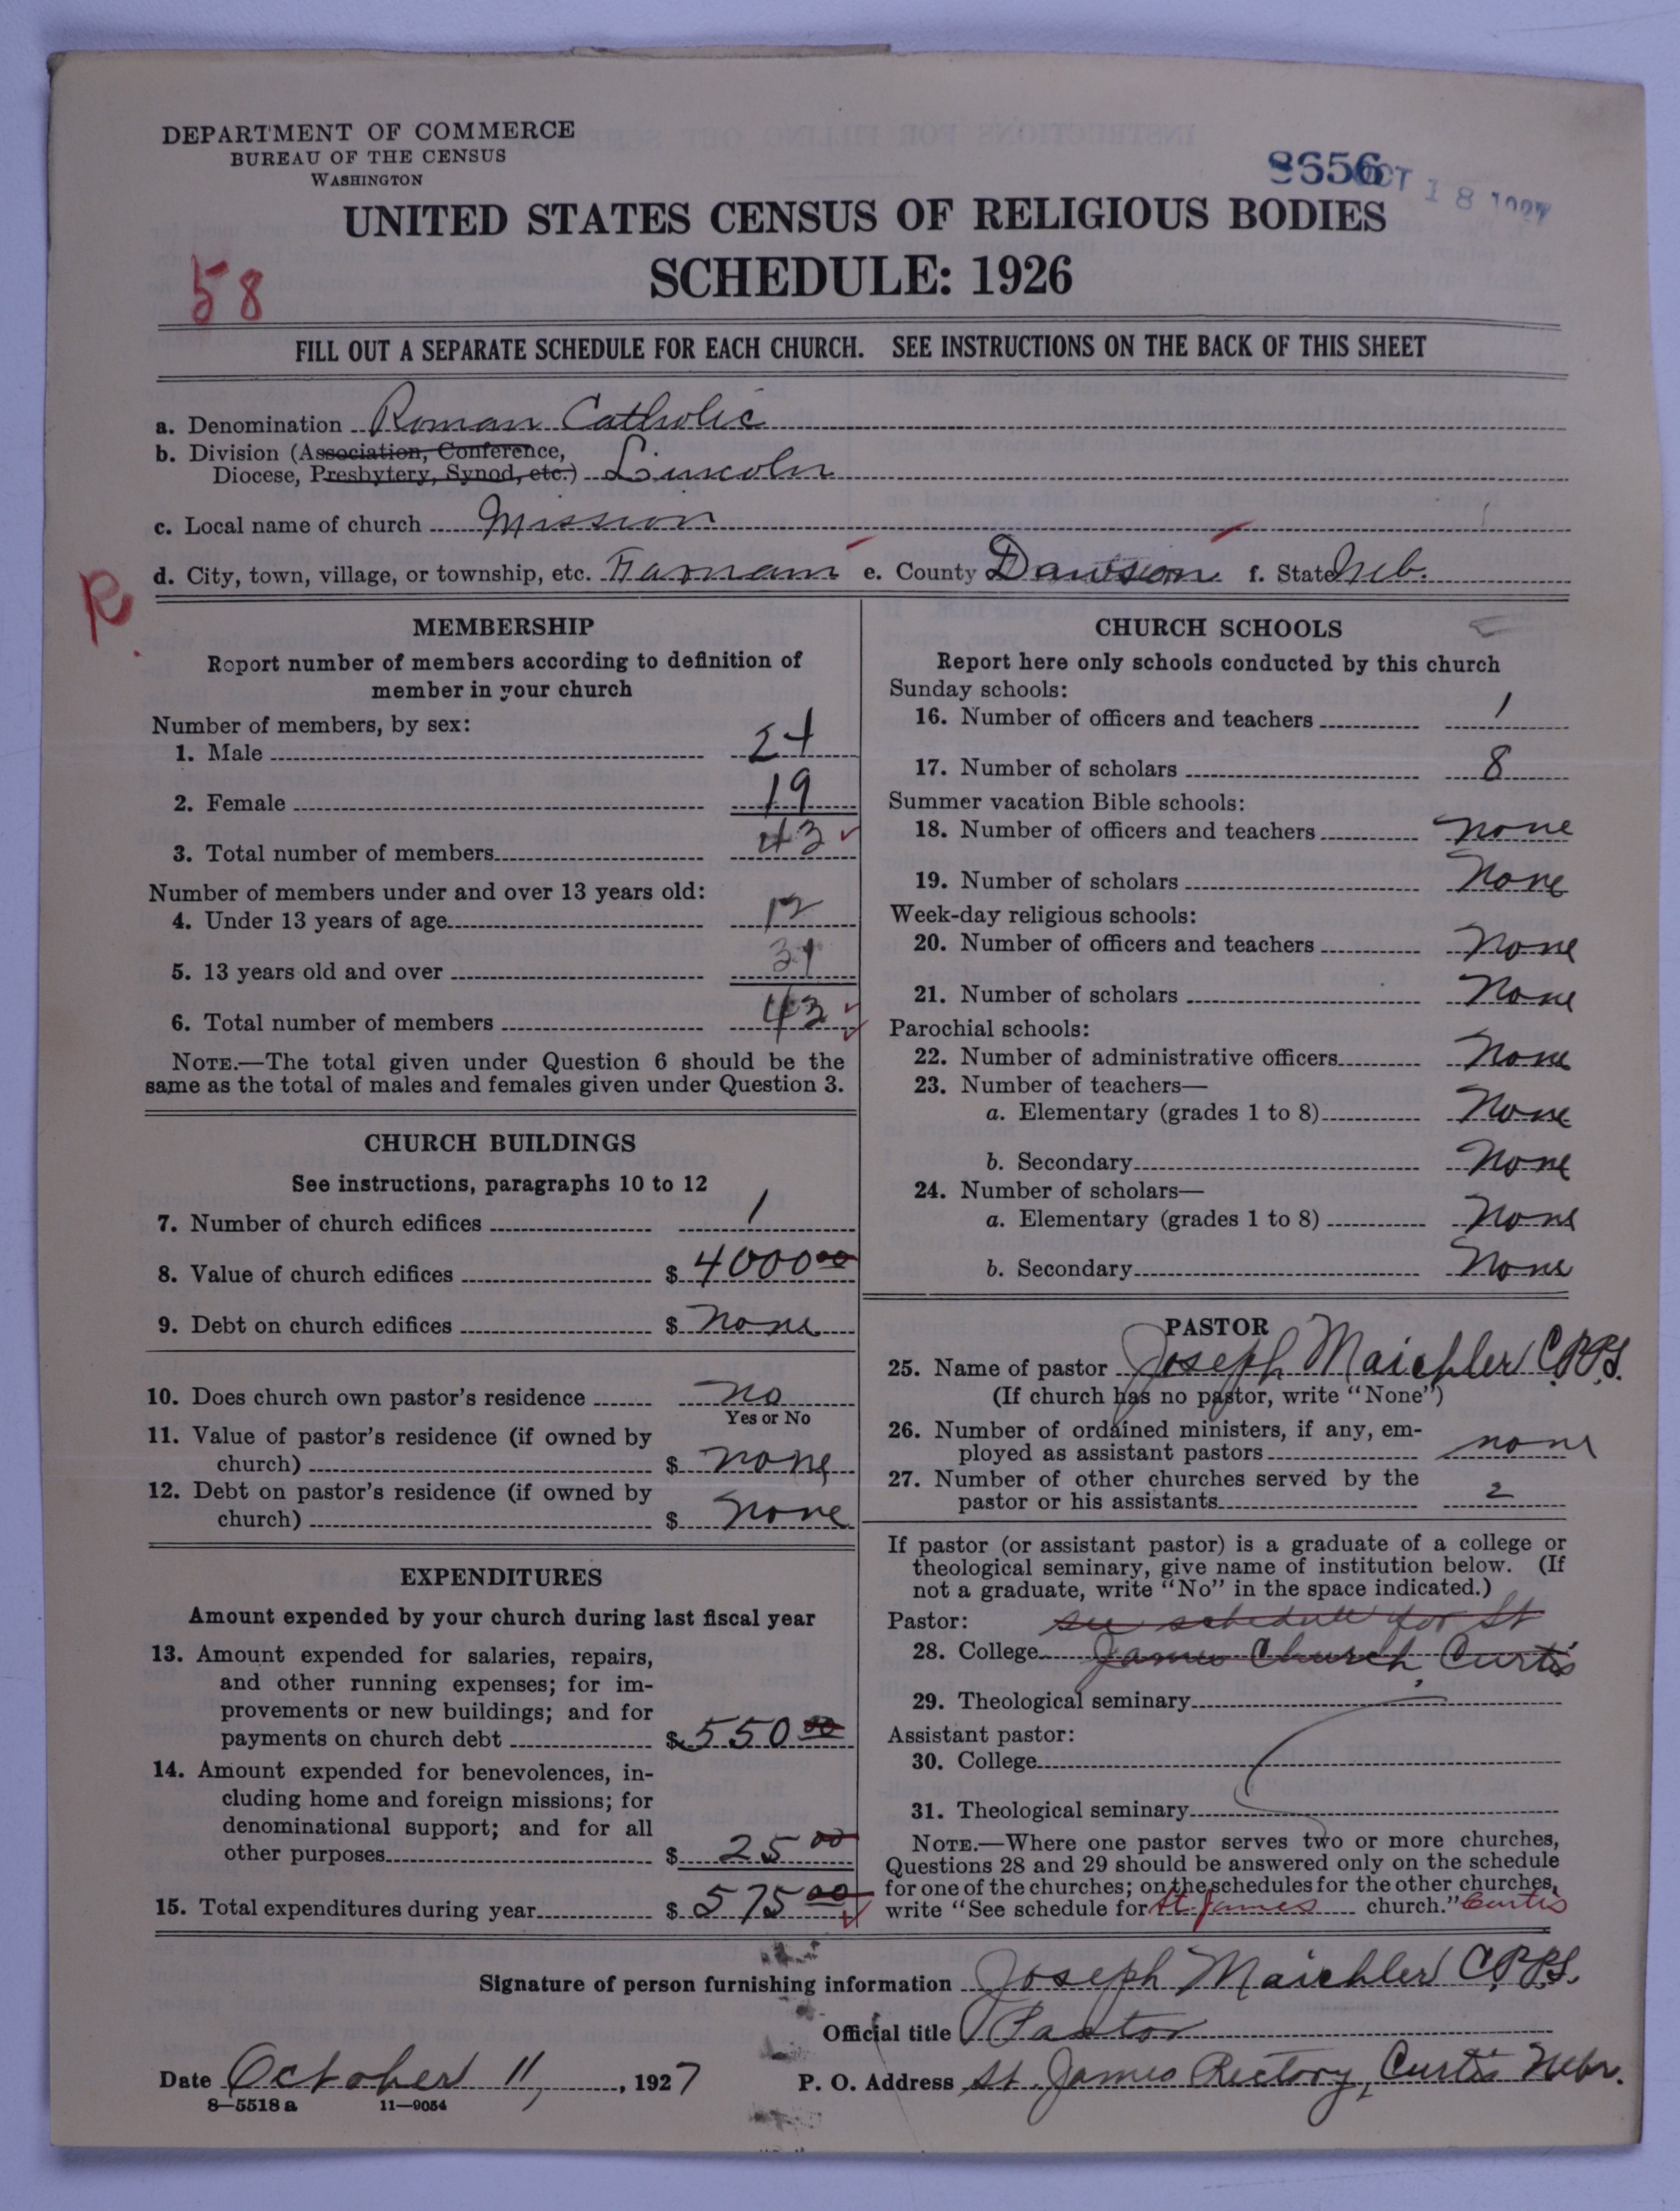 DEPARTMENT OF COMMERCE
BUREAU OF THE CENSUS
WASHINGTON
8656 OCT 18 1927
UNITED STATES CENSUS OF RELIGIOUS BODIES
SCHEDULE: 1926
58
FILL OUT A SEPARATE SCHEDULE FOR EACH CHURCH. SEE INSTRUCTIONS ON THE BACK OF THIS SHEET
a. Denomination Roman Catholic
b. Division (Association, Conference,
Diocese, Presbytery, Synod, etc.) Lincoln
c. Local name of church Mission
d. City, town, village, or township, etc. Farnam e. County Dawson f. State Neb.
R
MEMBERSHIP
Report number of members according to definition of
member in your church
Number of members, by sex:
1. Male 24
2. Female 19
3. Total number of members 43
Number of members under and over 13 years old:
4. Under 13 years of age 12
5. 13 years old and over 31
6. Total number of members 43
NOTE.—The total given under Question 6 should be the
same as the total of males and females given under Question 3.
CHURCH BUILDINGS
See instructions, paragraphs 10 to 12
7. Number of church edifices 1
8. Value of church edifices $ 4000 00
9. Debt on church edifices $ none
10. Does church own pastor's residence no
Yes or No
11. Value of pastor's residence (if owned by
church) $ none
12. Debt on pastor's residence (if owned by
church) $ none
EXPENDITURES
Amount expended by your church during last fiscal year
13. Amount expended for salaries, repairs,
and other running expenses; for im-
provements or new buildings; and for
payments on church debt $ 550 00
14. Amount expended for benevolences, in-
cluding home and foreign missions; for
denominational support; and for all
other purposes $ 25 00
15. Total expenditures during year $ 575 00
CHURCH SCHOOLS
Report here only schools conducted by this church
Sunday schools:
16. Number of officers and teachers 1
17. Number of scholars 8
Summer vacation Bible schools:
18. Number of officers and teachers none
19. Number of scholars None
Week-day religious schools:
20. Number of officers and teachers None
21. Number of scholars None
Parochial schools:
22. Number of administrative officers None
23. Number of teachers—
a. Elementary (grades 1 to 8) None
b. Secondary None
24. Number of scholars—
a. Elementary (grades 1 to 8) None
b. Secondary None
PASTOR
25. Name of pastor Joseph Maichler C.PP.S.
(If church has no pastor, write "None")
26. Number of ordained ministers, if any, em-
ployed as assistant pastors none
27. Number of other churches served by the
pastor or his assistants 2
If pastor (or assistant pastor) is a graduate of a college or
theological seminary, give name of institution below. (If
not a graduate, write "No" in the space indicated.)
Pastor: see schedule for St
28. College James Church, Curtis
29. Theological seminary
Assistant pastor:
30. College
31. Theological seminary
NOTE.—Where one pastor serves two or more churches,
Questions 28 and 29 should be answered only on the schedule
for one of the churches; on the schedules for the other churches,
write "See schedule for St. James church." Curtis
Signature of person furnishing information Joseph Maichler C.PP.S.
Official title Pastor
Date October 11, 1927 P. O. Address St. James Rectory, Curtis Nebr.
8—5518 a 11—9054